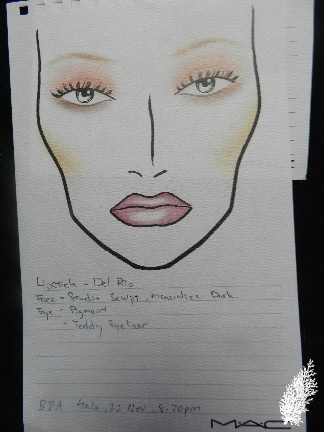 Lipstick - Del Rio
Face - Studio Sculpt, Mineralize Dark
Eye - Pigment
- Teddy Eyeliner
22 Nov, 8.30pm
MAC